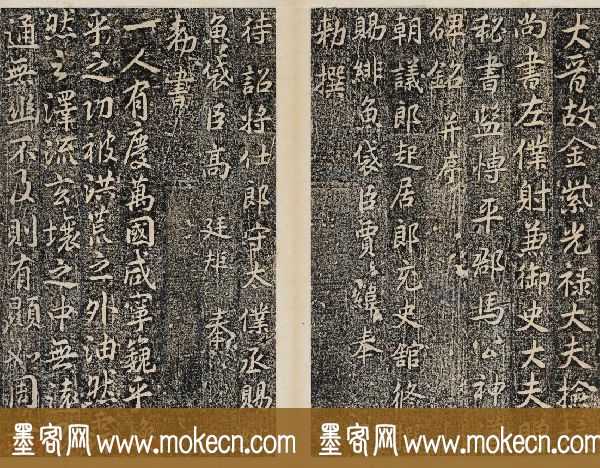 大晉故金紫光祿大夫檢
尚書左僕射兼御史大夫
秘書監愽平郡馬公神
碑銘并序
朝議郎起居郎充史舘修
賜緋魚袋臣賈緯奉
勑撰
待詔將仕郎守太僕丞賜
魚袋臣高廷矩奉
勑書
一人有慶萬國咸寧巍乎
乎之功被洪荒之外油然
然之澤流玄壤之中無遠
通無幽不及則有顯如周
墨客网 www.mokecn.com
墨客网 www.mokecn.com